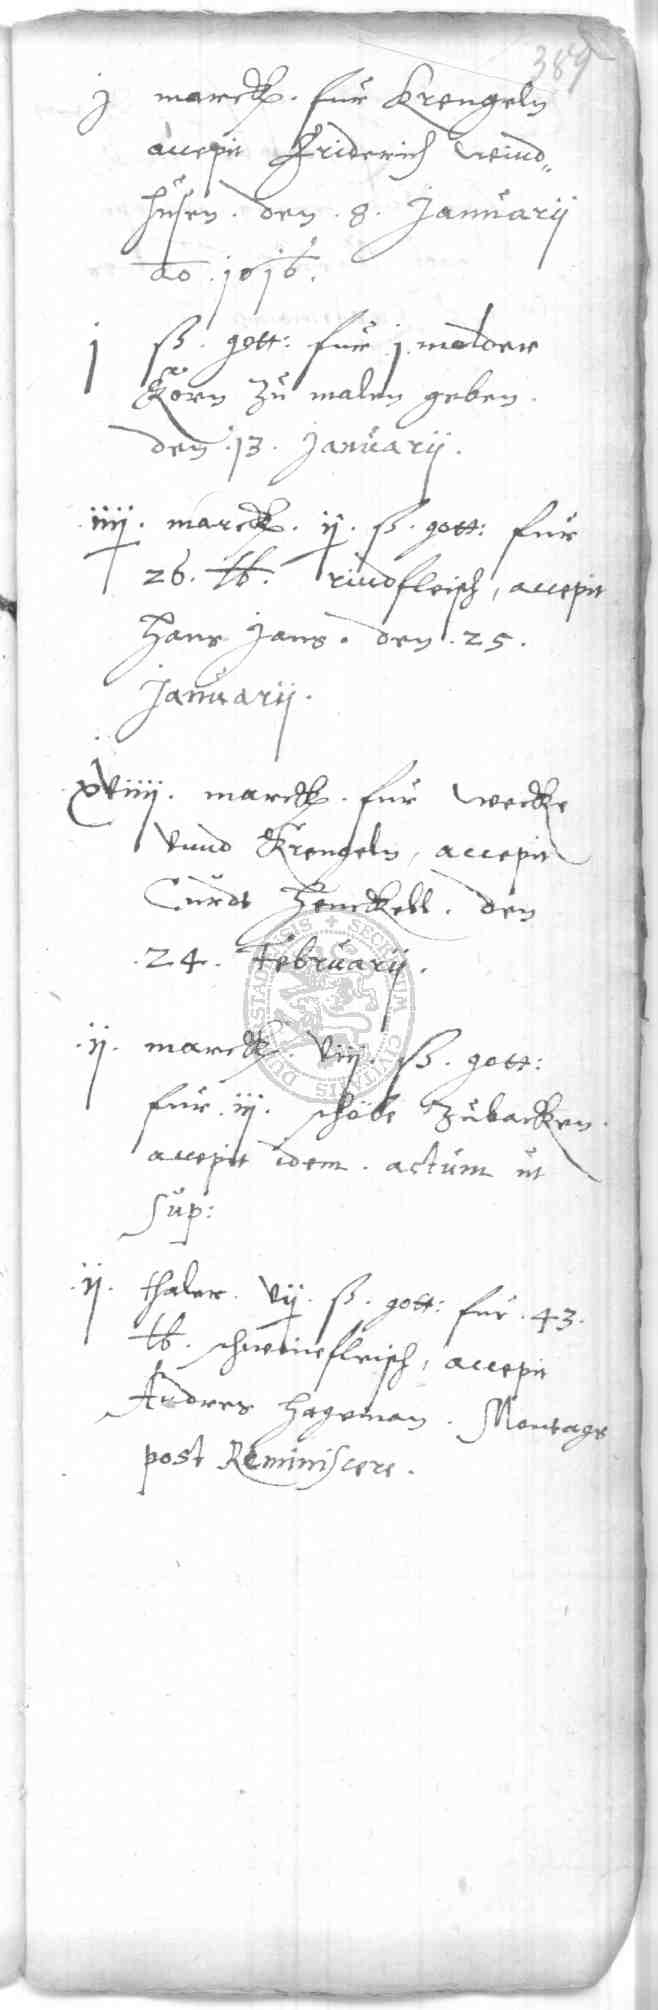 389
j marck. für Krengeln
accepit Friderich Wind„
husen. den. 8. Januarij
ao. 1616.
j ß. gott: für j. molder
Korn zu malen geben.
den 13. Januarij.
iiij. marck. ij. ß. gott: für
26. lb. rindfleisch, accepit
Hans Jans. den. 25.
Januarij.
xviiij. marck. für wecke
vnnd Krengeln, accepit
Curdt Henckell. den
24. Februarij.
ij. marck. viij. ß. gott:
für. iij. zubacken.
accepit idem. actum ut
sup:
ij. thaler. vij. ß. gott: für. 43.
lb. schweinefleisch, accepit
Andres Hageman. Montags
post Reminiscere.